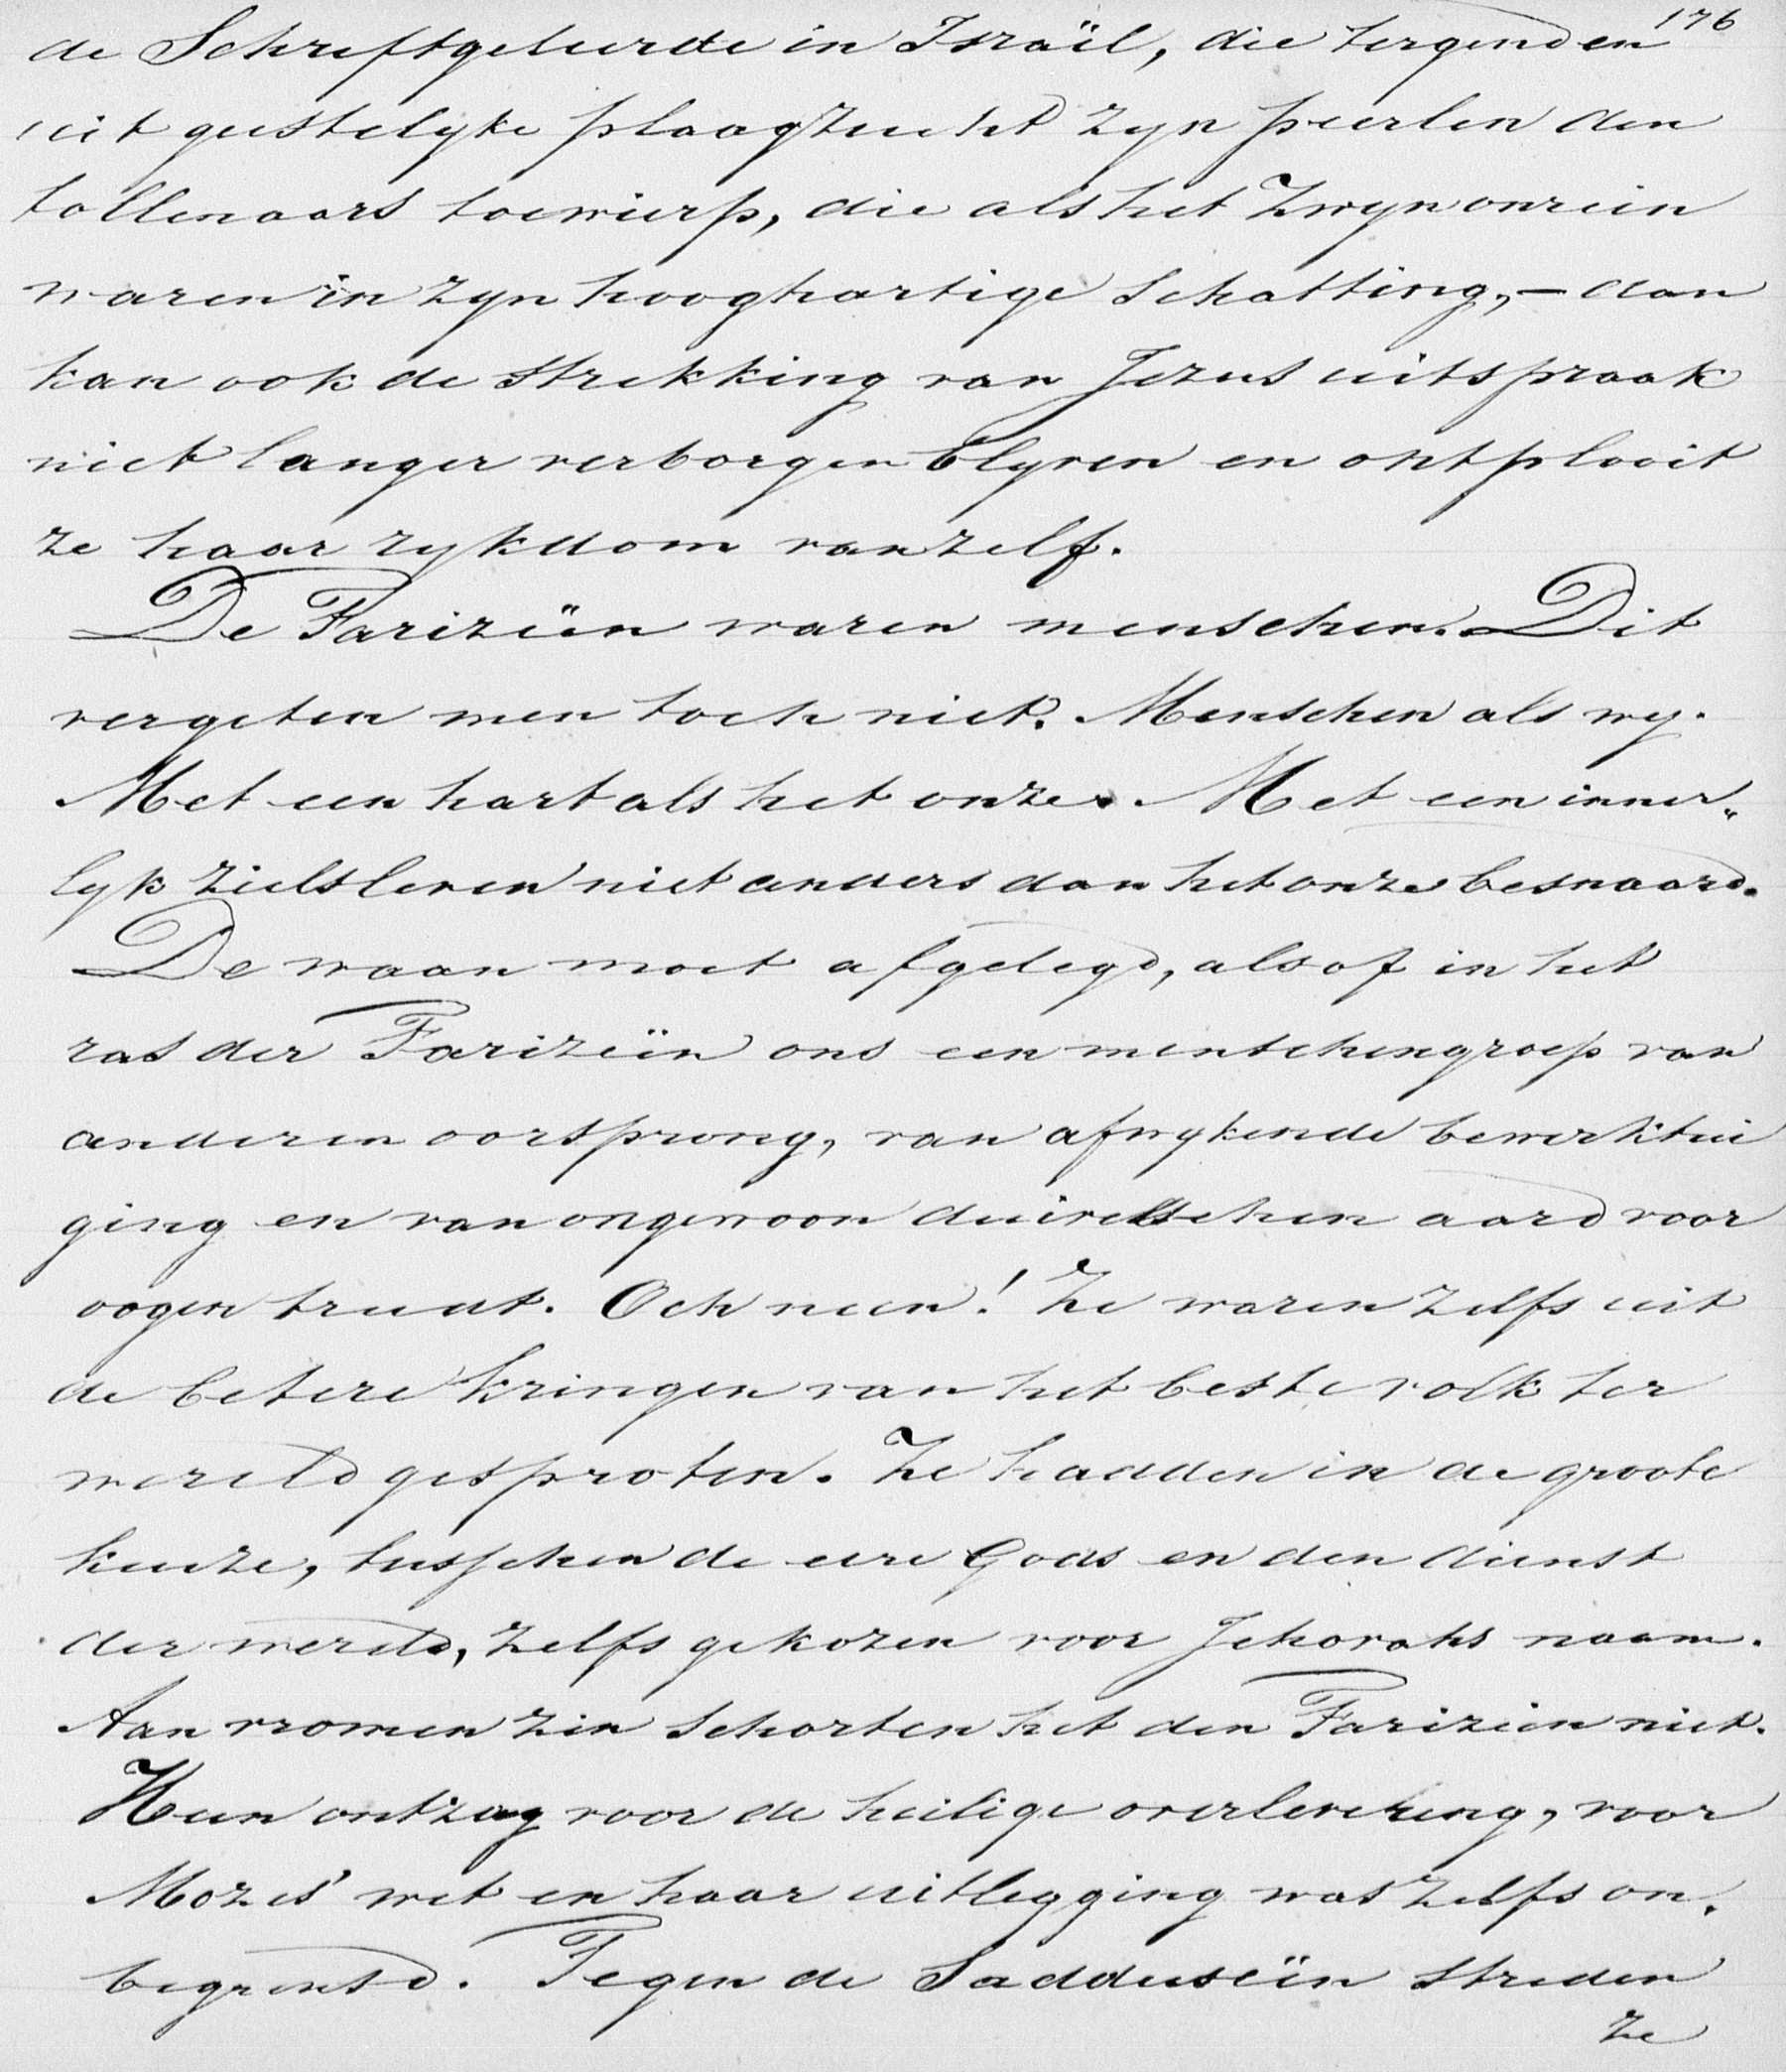 176
de Schriftgeleerde in Israël, die tergend en
uit geestelyke plaagzucht zyn peerlen den
tollenaars toewierp, die als het zwyn onrein
waren in zyn hooghartige schatting, — dan
kan ook de strekking van Jezus uitspraak
niet langer verborgen blyven en ontplooit
ze haar rykdom vanzelf.
De Farizeën waren menschen. Dit
vergeten men toch niet. Menschen als wy.
Met een hart als het onze. Met een inner„
lyk zielsleven niet anders dan het onze besnaard.
De waan moet afgelegd, alsof in het
ras der Farizeën ons een menschengroep van
anderen oorsprong, van afwykende bewerktui
ging en van ongewoon duivelschen aard voor
oogen treedt. Och neen! Ze waren zelfs uit
de betere kringen van het beste volk ter
wereld gesproten. Ze hadden in de groote
keuze, tusschen de eere Gods en den dienst
der wereld, zelfs gekozen voor Jehovahs naam.
Aan vromen zin schorten het den Farizeën niet.
Hun ontzag voor de heilige overlevering, voor
Mozes' wet en haar uitlegging was zelfs on„
begrensd. Tegen de Sadduseën streden
ze